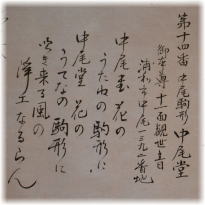 第十四番 中尾駒形 中尾堂
御本尊 十一面観世音
浦和市中尾一三九一番地
中尾堂 花の
うたねの 駒形に
中尾堂 花の
うてなの 駒形に
吹き来る 風の
浄土なるらん